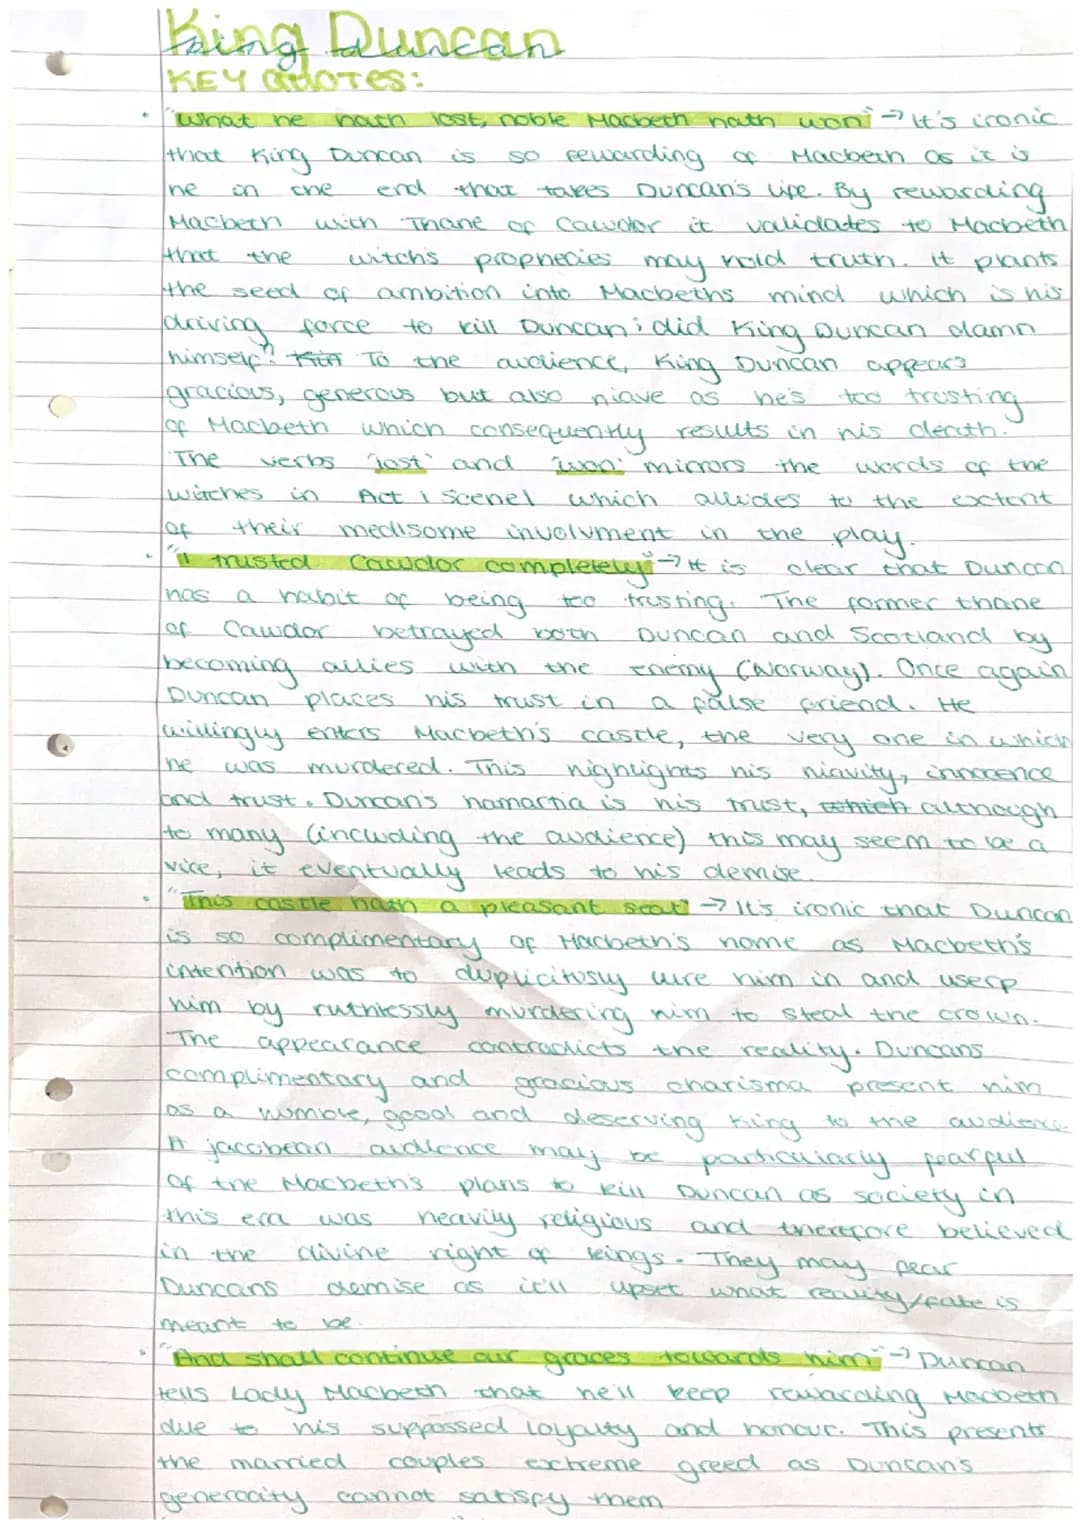 King Duncan
King Duncan
KEY QUOTES:
• "What he hath lost, noble Macbeth hath won" → It's ironic
that King Duncan is so rewarding of Macbeth as it is
he in the end that takes Duncan's life. By rewarding
Macbeth with Thane of Cawdor it validates to Macbeth
that the witch's prophecies may hold truth. It plants
the seed of ambition into Macbeths mind which is his
driving force to kill Duncan; did King Duncan damn
himself? To the audience, King Duncan appears
gracious, generous but also niave as he's too trusting
of Macbeth which consequently results in his death.
The verbs 'lost' and 'won' mirrors the words of the
witches in Act 1 Scene 1 which alludes to the extent
of their medlsome involvment in the play.
• "I trusted Cawdor completely" → It is clear that Duncan
has a habit of being too trusting. The former thane
of Cawdor betrayed both Duncan and Scotland by
becoming allies with the enemy (Norway). Once again
Duncan places his trust in a false friend. He
willingly enters Macbeth's castle, the very one in which
he was murdered. This highlights his niavity, innocence
and trust. Duncan's hamartia is his trust, which although
to many (including the audience) this may seem to be a
vice, it eventually leads to his demise.
• "This castle hath a pleasant seat" → It's ironic that Duncan
is so complimentary of Macbeth's home as Macbeth's
intention was to duplicitusly lure him in and userp
him by ruthlessly murdering him to steal the crown.
The appearance contradicts the reality. Duncans
complimentary and gracious charisma present him
as a humble, good and deserving king to the audience.
A jacobean audience may be particularly fearful
of the Macbeth's plans to kill Duncan as society in
this era was heavily religious and therefore believed
in the divine right of kings. They may fear
Duncans demise as it'll upset what reality/fate is
meant to be.
• "And shall continue our graces towards him" → Duncan
tells Lady Macbeth that he'll keep rewarding Macbeth
due to his supposed loyalty and honour. This presents
the married couples extreme greed as Duncan's
generocity cannot satisfy them